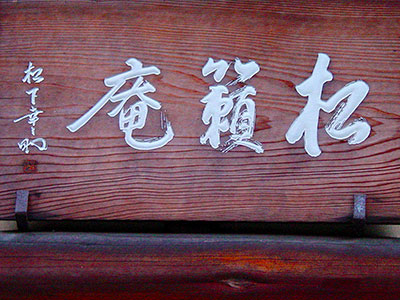 松籟庵
松下幸之助